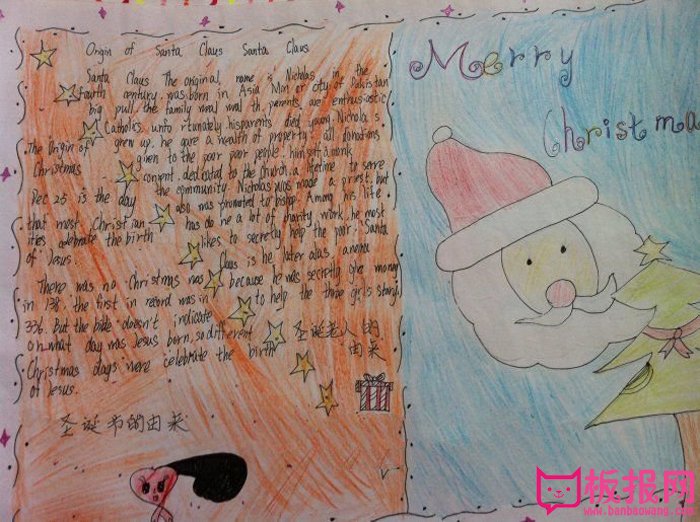 Origin of Santa Claus Santa Claus
Santa Claus The original, name is Nicholas, in the
fourth century, was born in Asia Min or city of Pakistan
big pull. the family
Catholics. unfo rtunately, hisparents died young Nichola s
grew up, he gave a wealth of property all donations
given to the poor poor people. himself a monk
convent. dedicated to the church, a lifetime to serve
the community. Nicholas was made a priest, but
also was promoted to bishop. Among his life,
has do ne a lot of charity work, he most
likes to secretly help the poor. Santa
Claus is he later alias,
because he was secretly give money
to help the three girls story.
圣诞老人的
由来
The Origin of
Christmas
Dec 25 is the day
that most Christ ian
ities celebrate the birth
of Jesus.
There was no Christmas
in 138. the first in record was in
336. But the bible doesn't indicate
on what day was Jesus born, so different
Christmas days were celebrate the birth
of Jesus.
圣诞节的由来
Merry
Christma
板报网
www.banbaowang.com